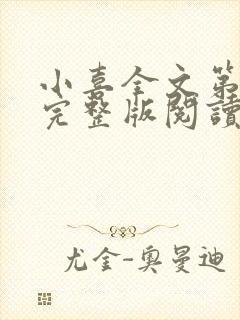 小喜全文第
完整版閱讀
尤金-奥曼迪